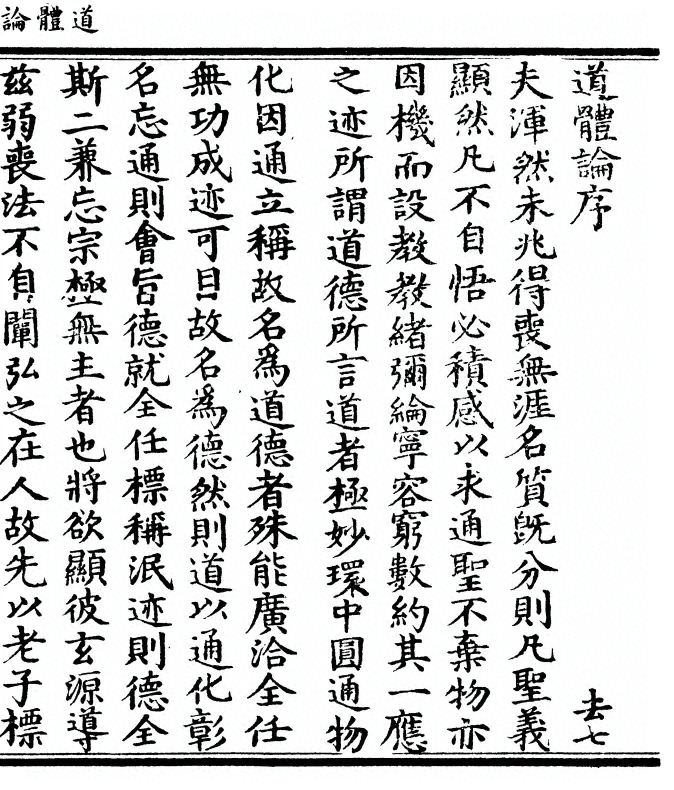 道體論
道體論序
去七
夫渾然未兆得喪無涯名質旣分則凡聖義
顯然凡不自悟必積感以求通聖不棄物亦
因機而設教教緒彌綸寧容窮數約其一應
之迹所謂道德所言道者極妙環中圓通物
化因通立稱故名爲道德者殊能廣洽全任
無功成迹可目故名爲德然則道以通化彰
名忘通則會旨德就全任標稱泯迹則德全
斯二兼忘宗極無主者也將欲顯彼玄源導
茲弱喪法不自闡弘之在人故先以老子標